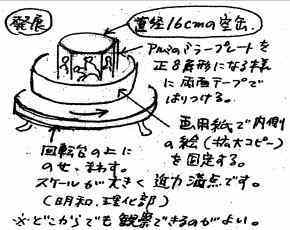 発展
直径16cmの空缶.
アルミのミラープレートを
正8角形になる様
に両面テープで
はりつける。
画用紙で内側
の絵(拡大コピー)
を固定する。
回転台の上に
のせ、まわす。
スケールが大きく 迫力満点です。
(明和. 理化部)
※どこからでも観察できるのがよい。